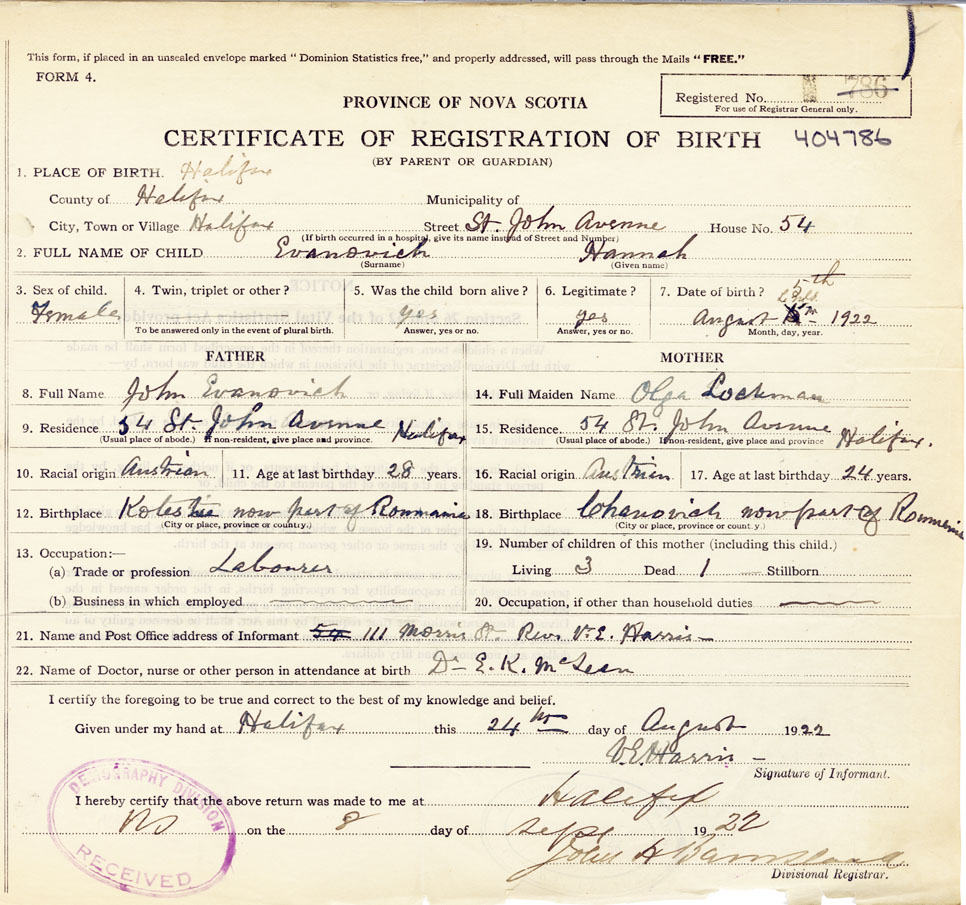 This form, if placed in an unsealed envelope marked "Dominion Statistics free," and properly addressed, will pass through the Mails "FREE."
FORM 4.
Registered No. 786
For use of Registrar General only.
PROVINCE OF NOVA SCOTIA
CERTIFICATE OF REGISTRATION OF BIRTH 404786
(BY PARENT OR GUARDIAN)
1. PLACE OF BIRTH. Halifax
County of Halifax Municipality of
City, Town or Village Halifax Street St. John Avenue House No. 54
(If birth occurred in a hospital, give its name instead of Street and Number)
2. FULL NAME OF CHILD Evanovich Hannah
(Surname) (Given name)
3. Sex of child. 4. Twin, triplet or other? 5. Was the child born alive? 6. Legitimate? 7. Date of birth? 5th
Female yes yes August 1922
To be answered only in the event of plural birth. Answer, yes or no. Answer, yes or no. Month, day, year.
FATHER MOTHER
8. Full Name John Evanovich 14. Full Maiden Name Olga Lockman
9. Residence 54 St. John Avenue Halifax 15. Residence. 54 St. John Avenue Halifax.
(Usual place of abode.) If non-resident, give place and province. (Usual place of abode.) If non-resident, give place and province
10. Racial origin Austrian 11. Age at last birthday 28 years. 16. Racial origin Austrian 17. Age at last birthday 24 years.
12. Birthplace now part of Roumania 18. Birthplace Chanovich now part of Roumania
(City or place, province or country.) (City or place, province or country.)
19. Number of children of this mother (including this child.)
13. Occupation:—
(a) Trade or profession Labourer Living 3 Dead 1 Stillborn
(b) Business in which employed 20. Occupation, if other than household duties
21. Name and Post Office address of Informant 54 111 Morris St. Rev. V. E. Harris
22. Name of Doctor, nurse or other person in attendance at birth Dr E. K. McLean
I certify the foregoing to be true and correct to the best of my knowledge and belief.
Given under my hand at Halifax this 24th day of August 1922
V. E. Harris
Signature of Informant.
I hereby certify that the above return was made to me at Halifax
NS on the 8 day of Sept 1922
John A
Divisional Registrar.
DEMOGRAPHY DIVISION
RECEIVED